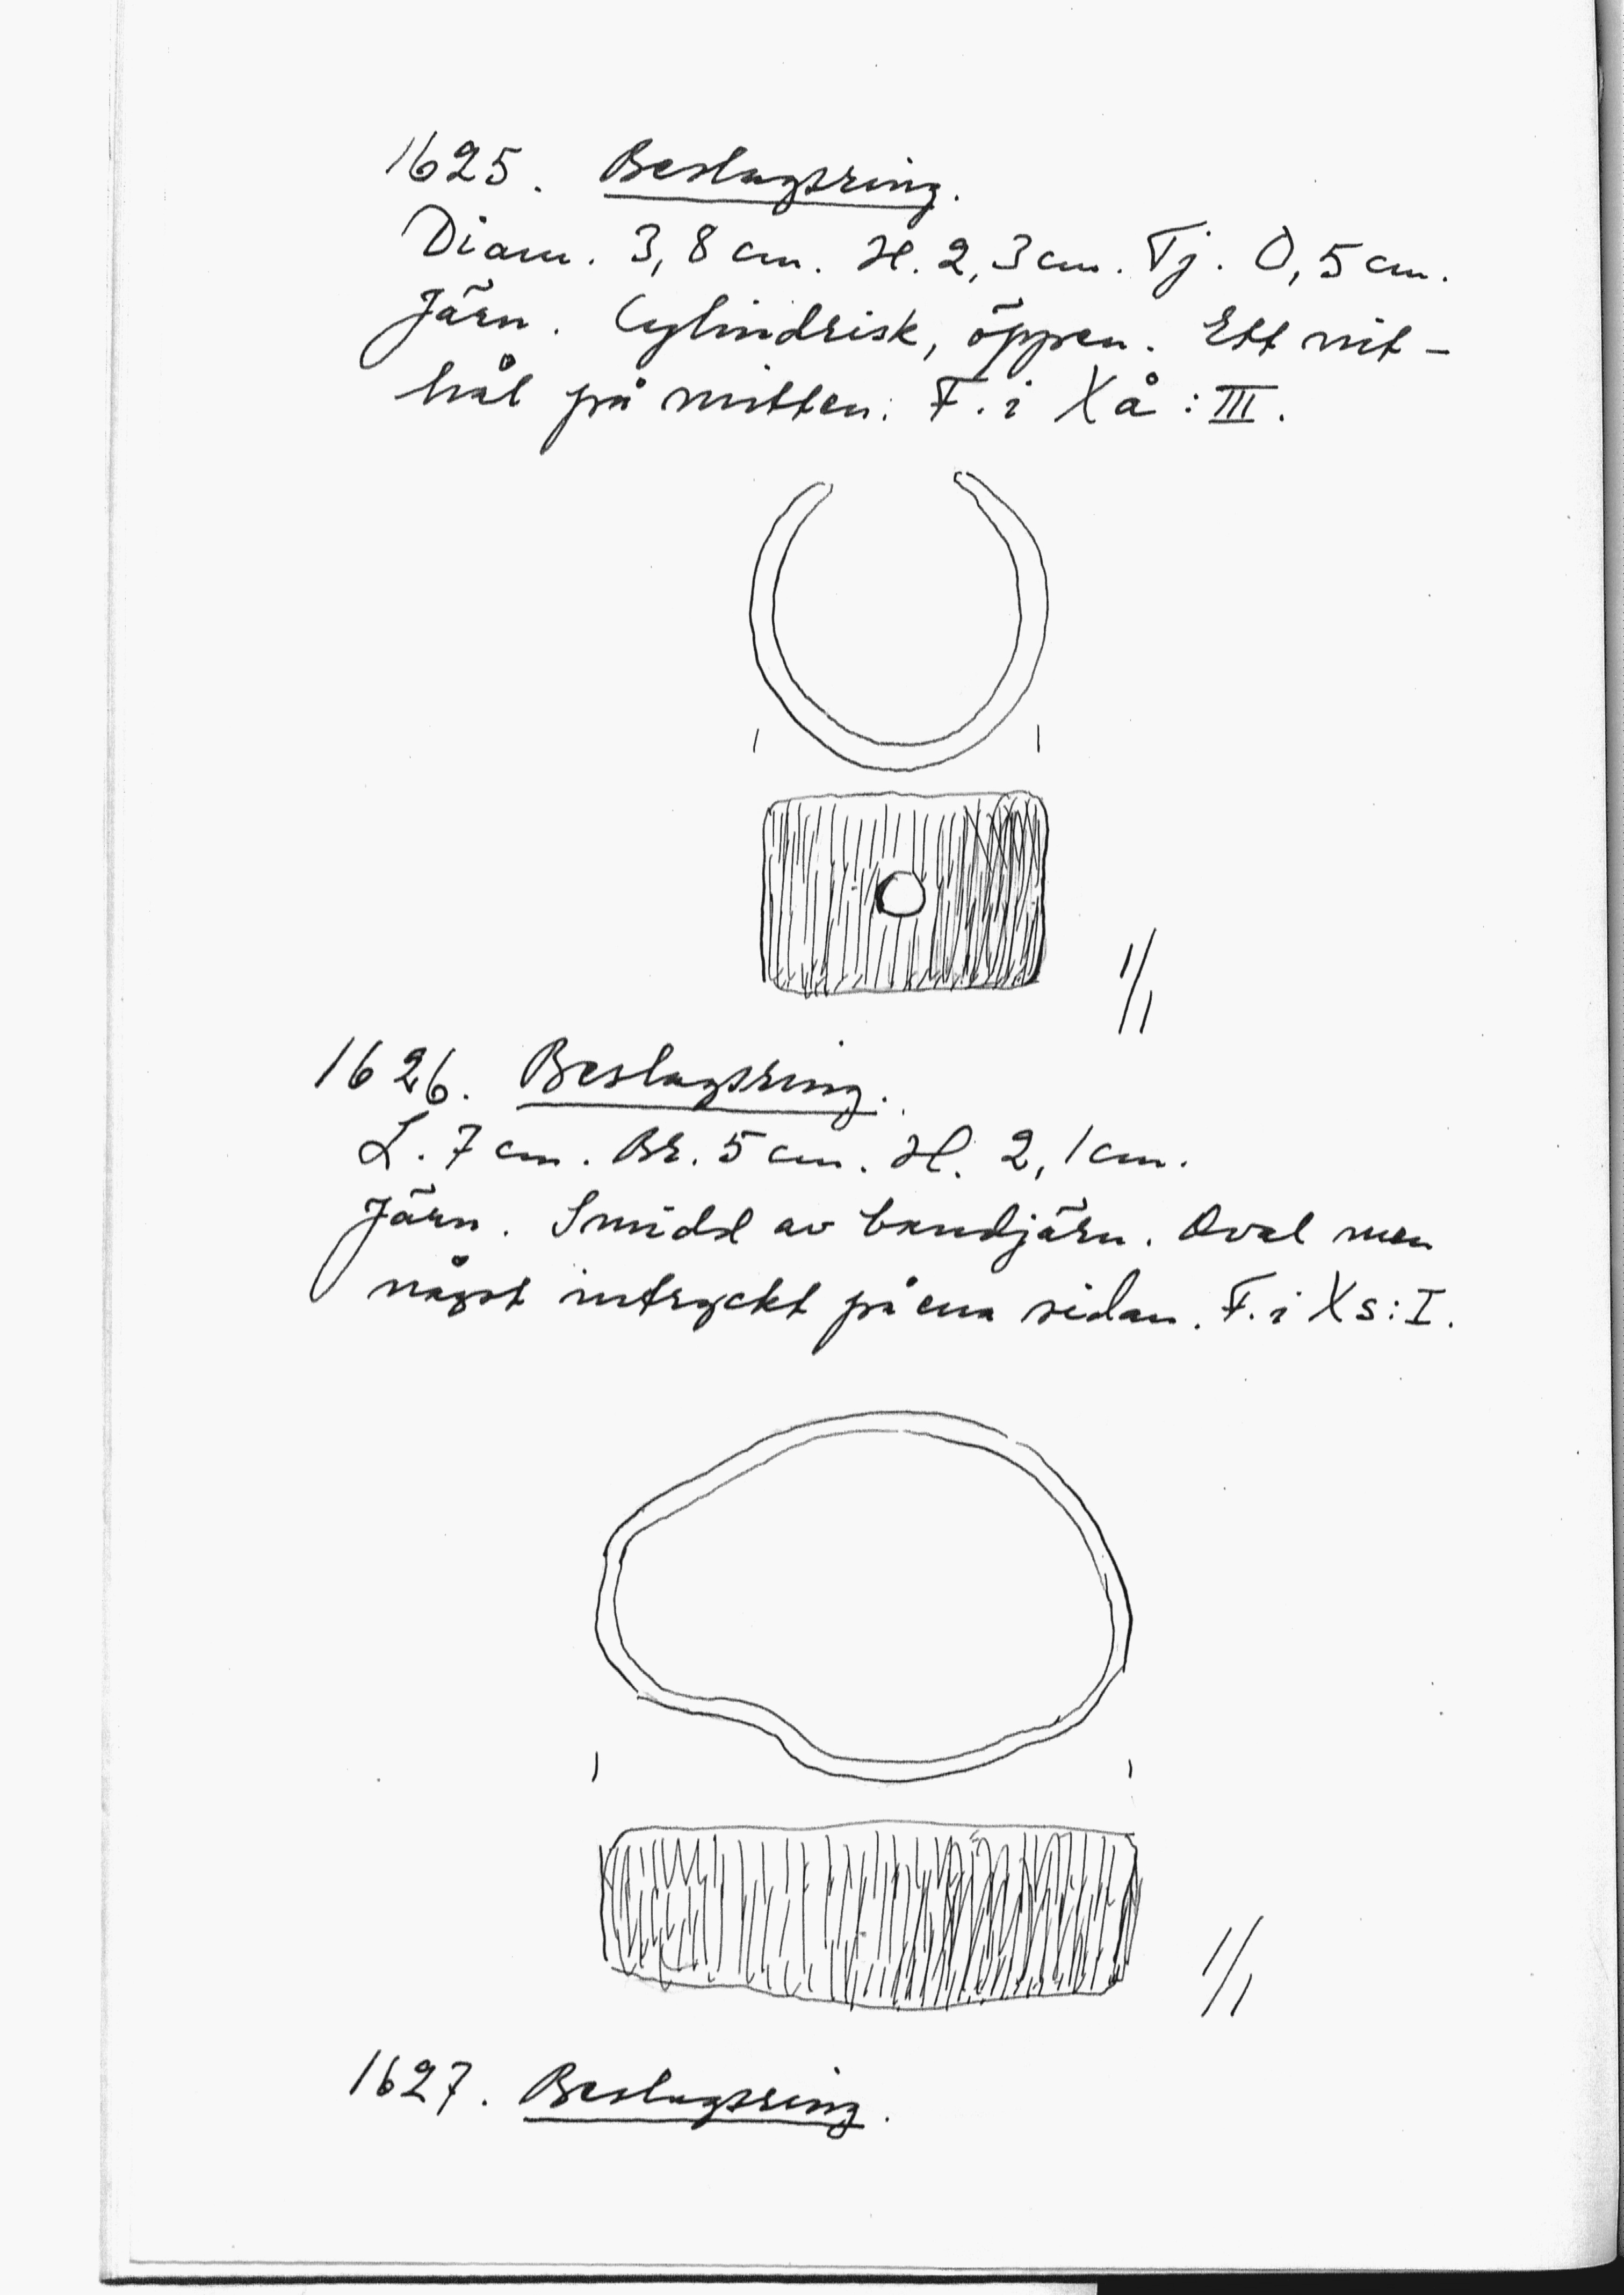 1625. Beslagsring.
Diam. 3,8 cm. H. 2,3 cm. Tj. 0,5 cm.
Järn. Cylindrisk, öppen. Ett nit-
hål på mitten. F. i Xå:III.
1/1
1626. Beslagsring.
L. 7 cm. Br. 5 cm. H. 2,1 cm.
Järn. Smidd av bandjärn. Oval men
något intryckt på ena sidan. F. i Xs:I.
1/1
1627. Beslagsring.